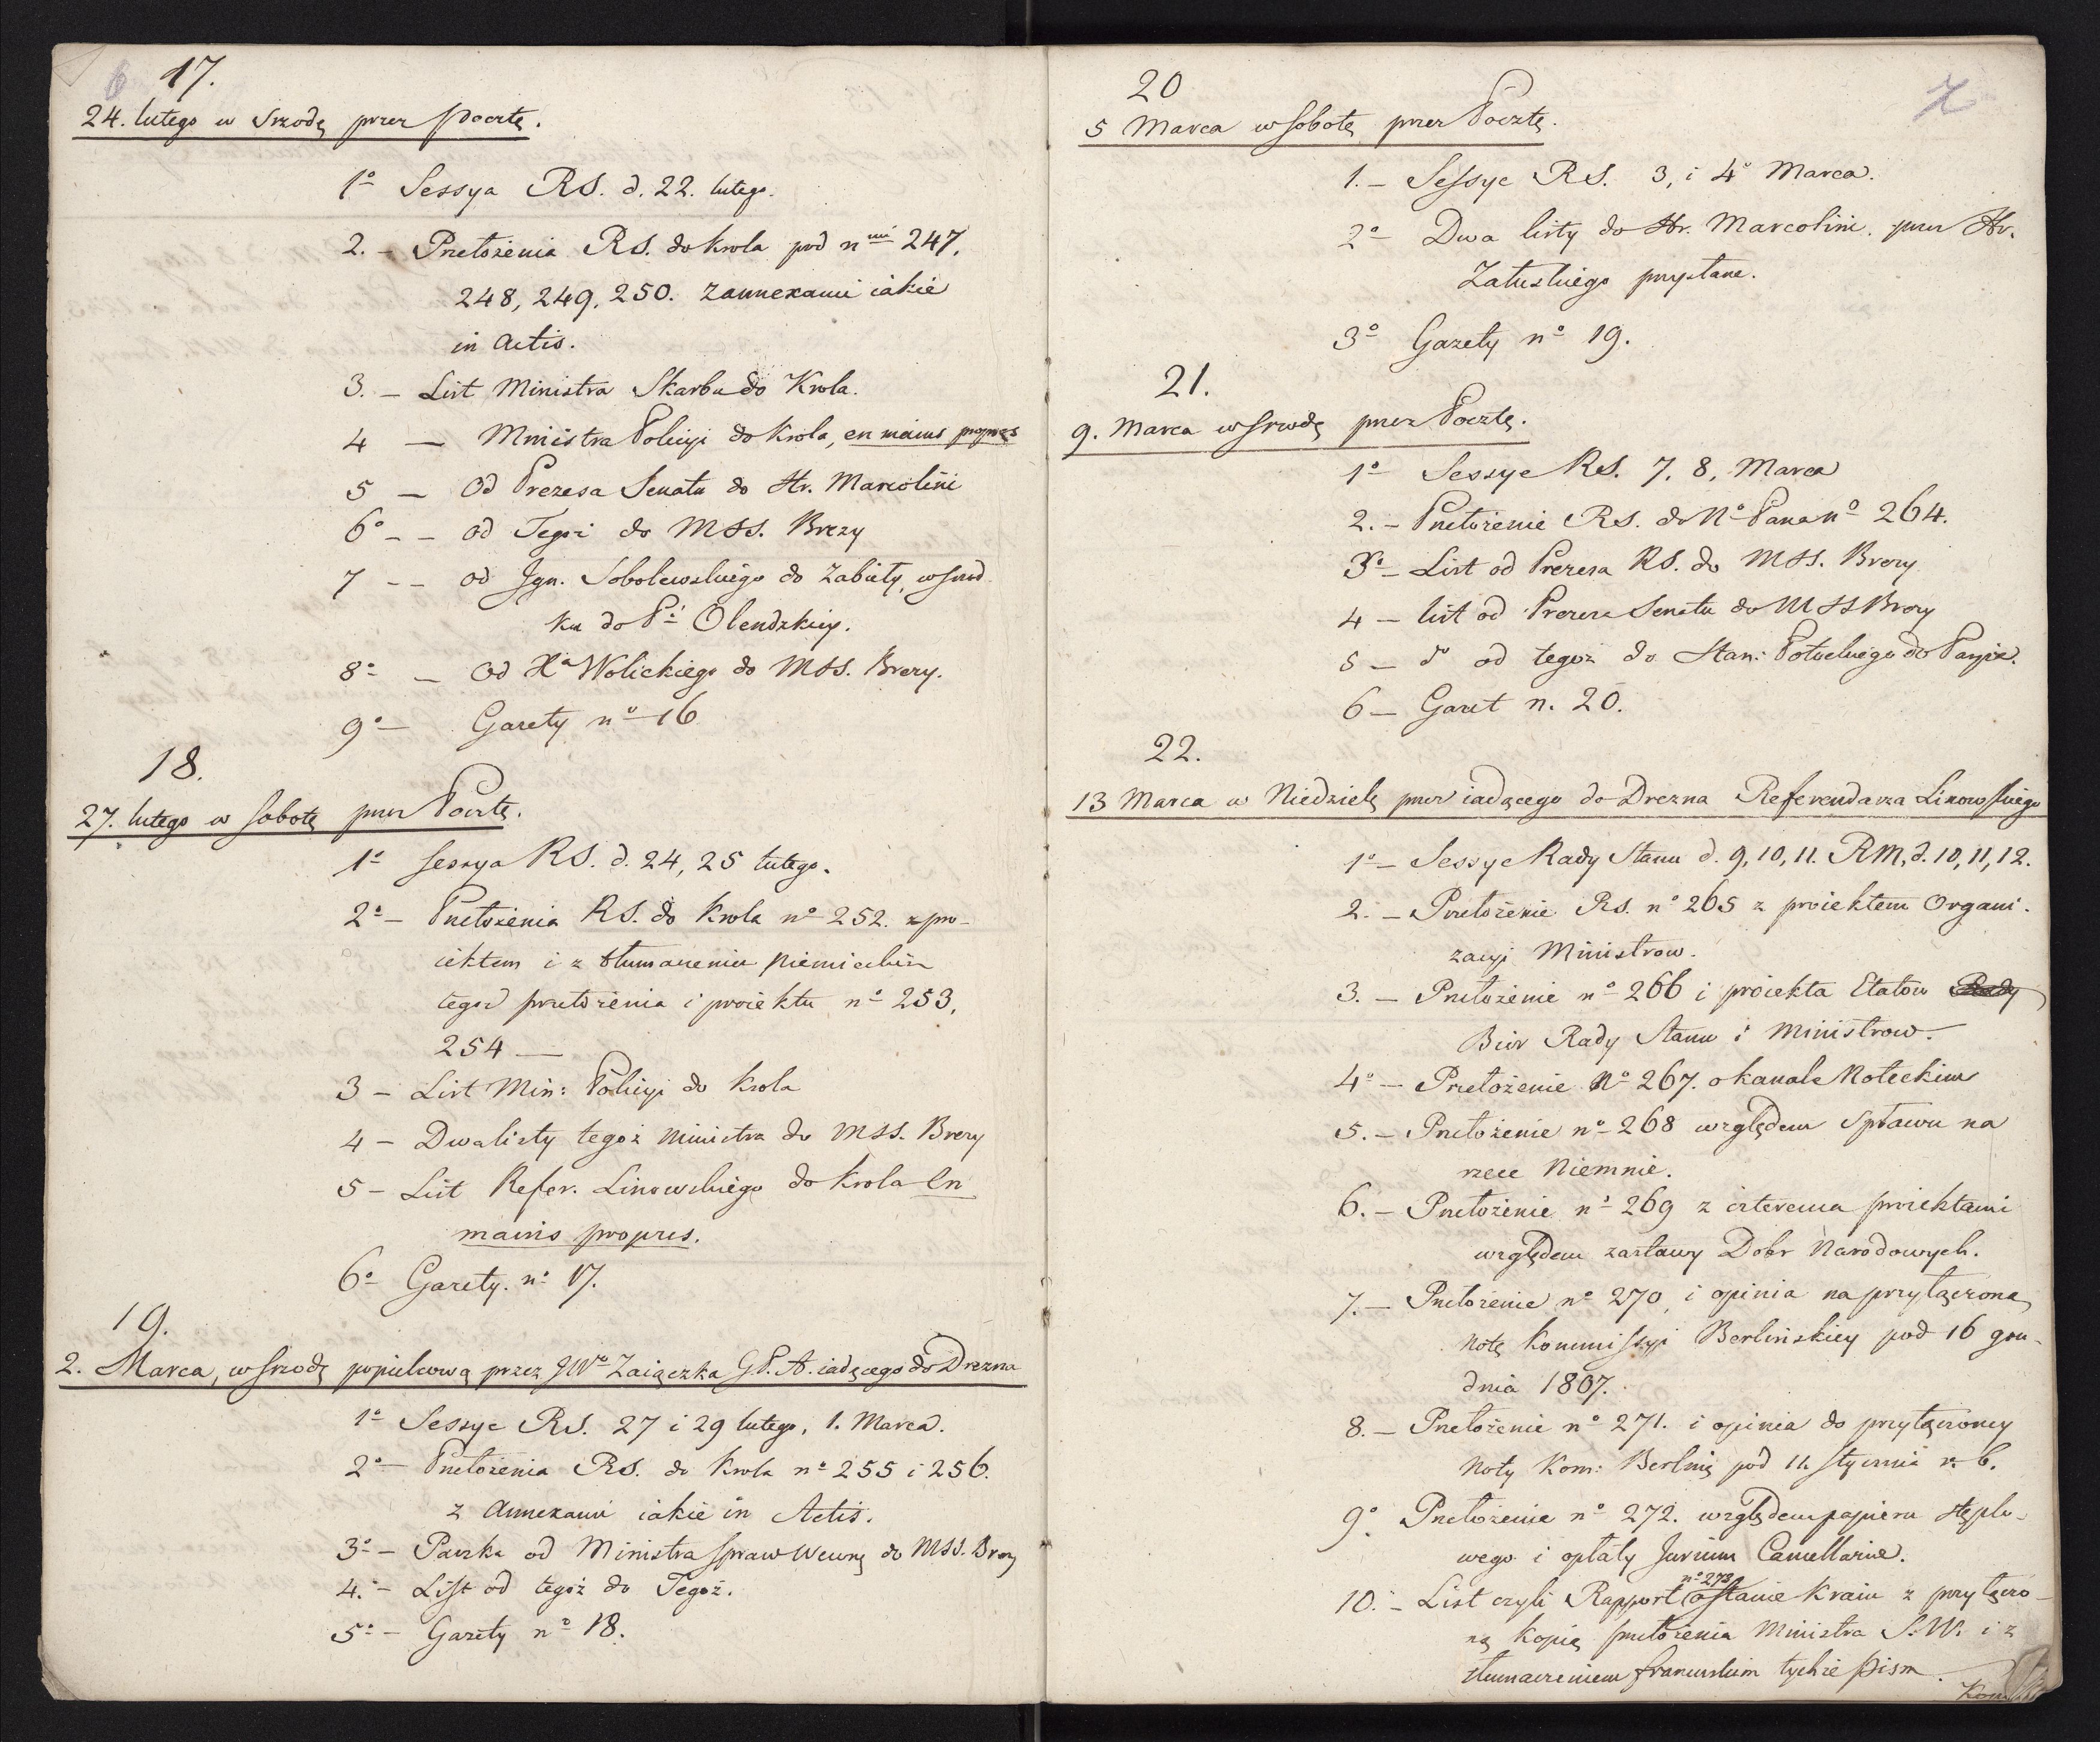 6 17.
24. lutego w Srzodę przez Pocztę.
1º Sessya RS. d. 22. lutego.
2. – Przełożenia RS. do Krola pod nmi 247,
248, 249, 250. z annexami iakie
in Actis.
3. – List Ministra Skarbu do Krola.
4 – Ministra Policyi do Krola, en mains propres
5 – Od Prezesa Senatu do Hr. Marcolini
6º – – od Tegoż do MSS. Brezy
7 – – od Ign. Sobolewskiego do Zabiełły, w srod
ku do Pi Olendzkiey.
8º – od Xa Wolickiego do MSS. Brezy.
9º – Gazety nº 16
18.
27. lutego w Sobotę przez Pocztę.
1º Sessya RS. d. 24, 25 lutego.
2º – Przełożenia RS. do Krola nº 252. z pro-
iektem i z tłumaczeniem niemieckim
tegoż przełożenia i proiektu nº 253,
254 —
3 – List Min: Policyi do Krola
4 – Dwa listy tegoż Ministra do MSS. Brezy
5 – List Refer. Linowskiego do Krola en
mains propres.
6º Gazety. nº 17.
19.
2. Marca, w Srzodę popielcową przez JWo Zaiączka G.P.A. iadącego do Drezna
1º Sessye RS. 27 i 29 lutego, 1. Marca.
2º – Przełożenia RS. do Krola nº 255 i 256.
z Annexami iakie in Actis.
3º – Paczka od Ministra Spraw Wewnę do MSS. Brezy
4.º – List od tegoż do Tegoż.
5º – Gazety nº 18.
7
20
5 Marca w Sobotę przez Pocztę.
1. – Sessye RS. 3, i 4º Marca.
2º – Dwa listy do Hr. Marcolini. przez Hr.
Załuskiego przysłane.
3º Gazety nº 19.
21.
9. Marca w Srodę przez Pocztę.
1º Sessye RS. 7, 8, Marca
2. – Przełożenie RS. do Nº Pana nº 264.
3º – List od Prezesa RS. do MSS. Brezy
4 – list od Prezesa Senatu do MSS Brezy
5 – dº od tegoż do Stan: Potockiego do Paryża.
6 – Gazet n. 20.
22.
13 Marca w Niedzielę przez iadącego do Drezna Referendarza Linowskiego
1º – Sessye Rady Stanu d. 9, 10, 11. RM, d. 10, 11, 12.
2. – Przełożenie RS. nº 265 z proiektem Organi-
zacyi Ministrow.
3. – Przełożenie nº 266 i proiekta Etatow Rady
Biur Rady Stanu i Ministrow –
4º – Przełożenie Nº 267. o kanale Noteckim
5. – Przełożenie nº 268 względem Spławu na
rzece Niemnie.
6. – Przełożenie nº 269 z czterema proiektami
względem zastawy Dobr Narodowych.
7. – Przełożenie nº 270, i opinia na przyłączoną
Notę Kommissyi Berlińskiey pod 16 gru-
dnia 1807.
8. – Przełożenie nº 271. i opinia do przyłączoney
Noty Kom: Berliń pod 11. stycznia r. b.
9º. Przełożenie nº 272. względem papieru stęplo-
wego i opłaty Jurium Cancellariae.
10. – List czyli Rapport nº 273 o stanie Kraiu z przyłączo-
ną kopią przełożenia Ministra S.W. i z
tłumaczeniem francuskim tychże pism.